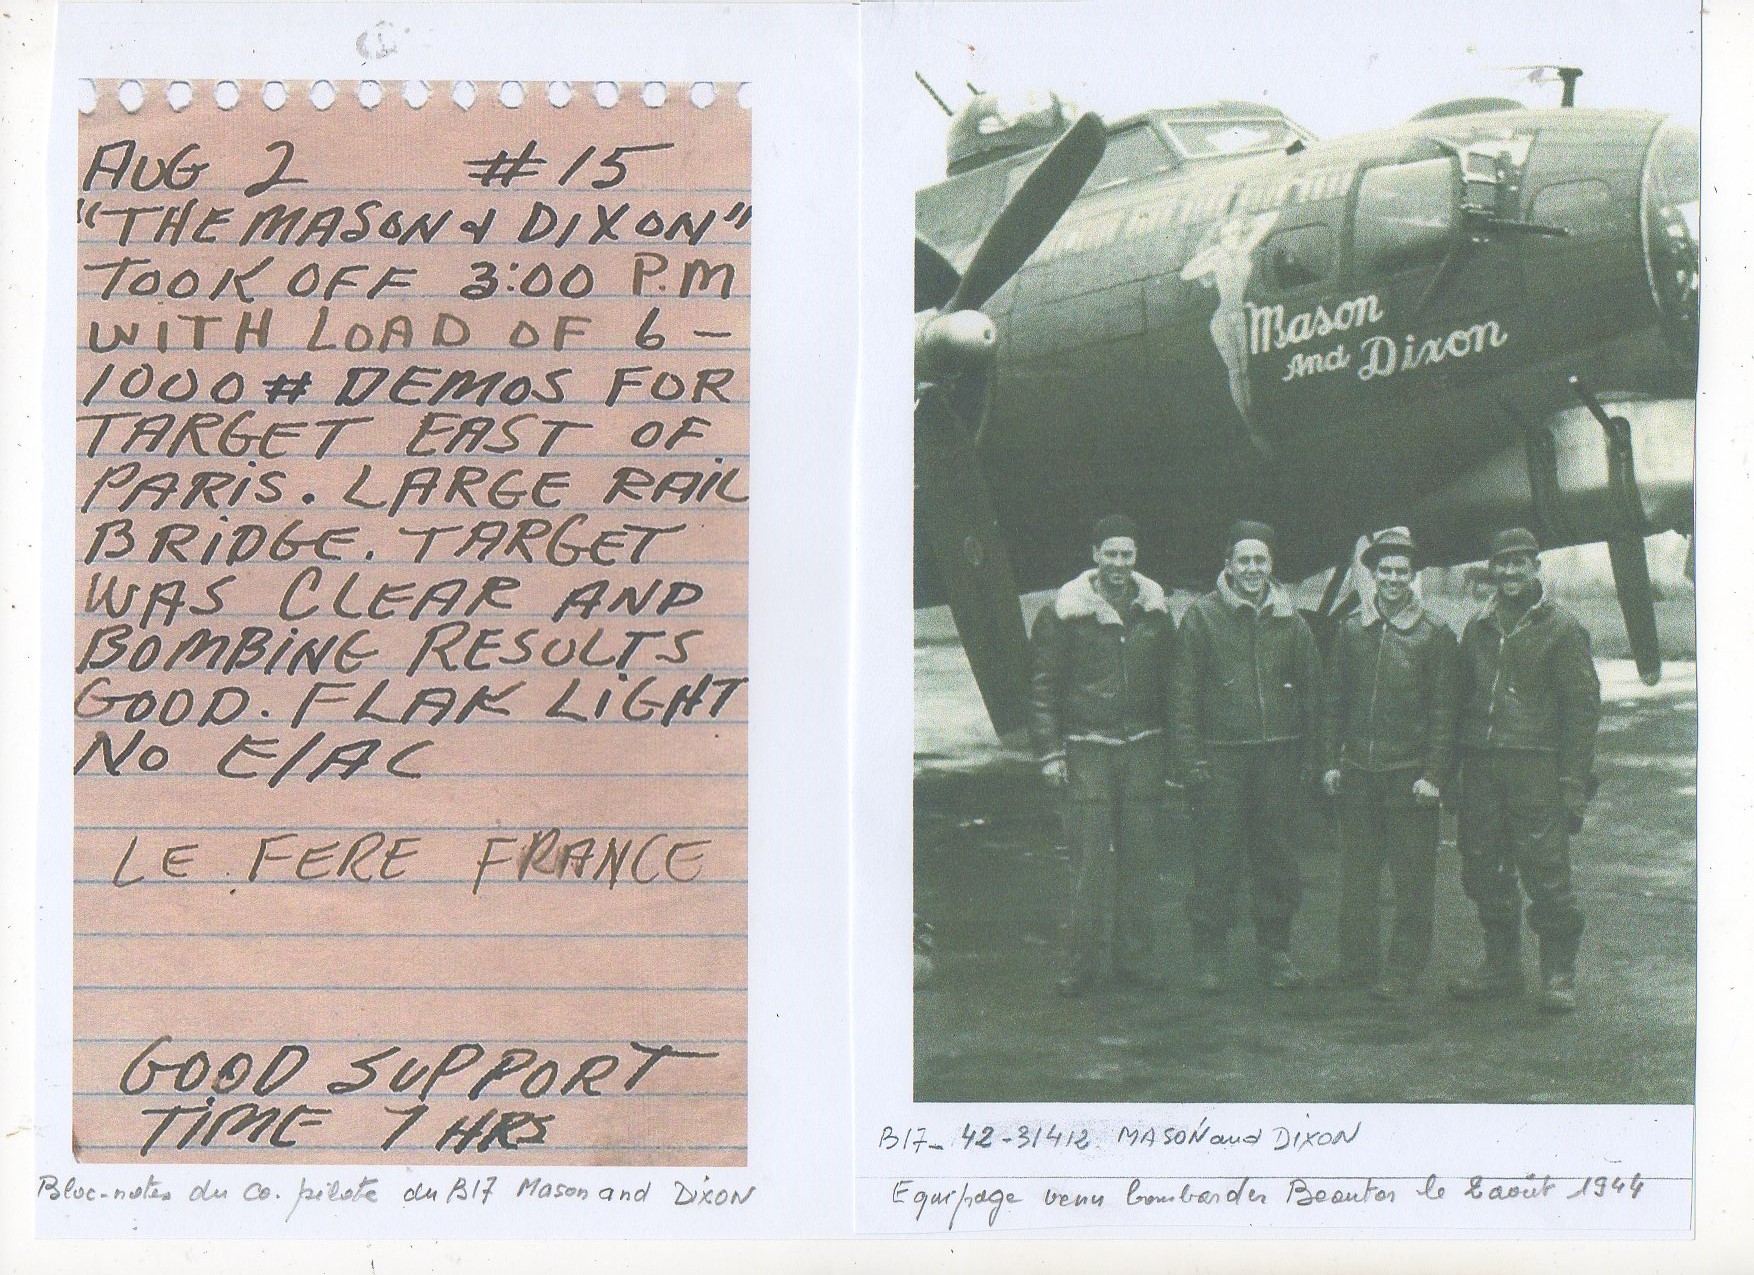 AUG 2 #15
"THE MASON & DIXON"
TOOK OFF 3:00 P.M
WITH LOAD OF 6 -
1000 # DEMOS FOR
TARGET EAST OF
PARIS. LARGE RAIL
BRIDGE. TARGET
WAS CLEAR AND
BOMBING RESULTS
GOOD. FLAK LIGHT
NO E/AC
LE FERE FRANCE
GOOD SUPPORT
TIME 7 HRS
Bloc-notes du Co. pilote du B17 Mason and DIXON
Mason
And Dixon
B17- 42-31412 MASON and DIXON
Equipage venu bombarder Beautor le 2 août 1944